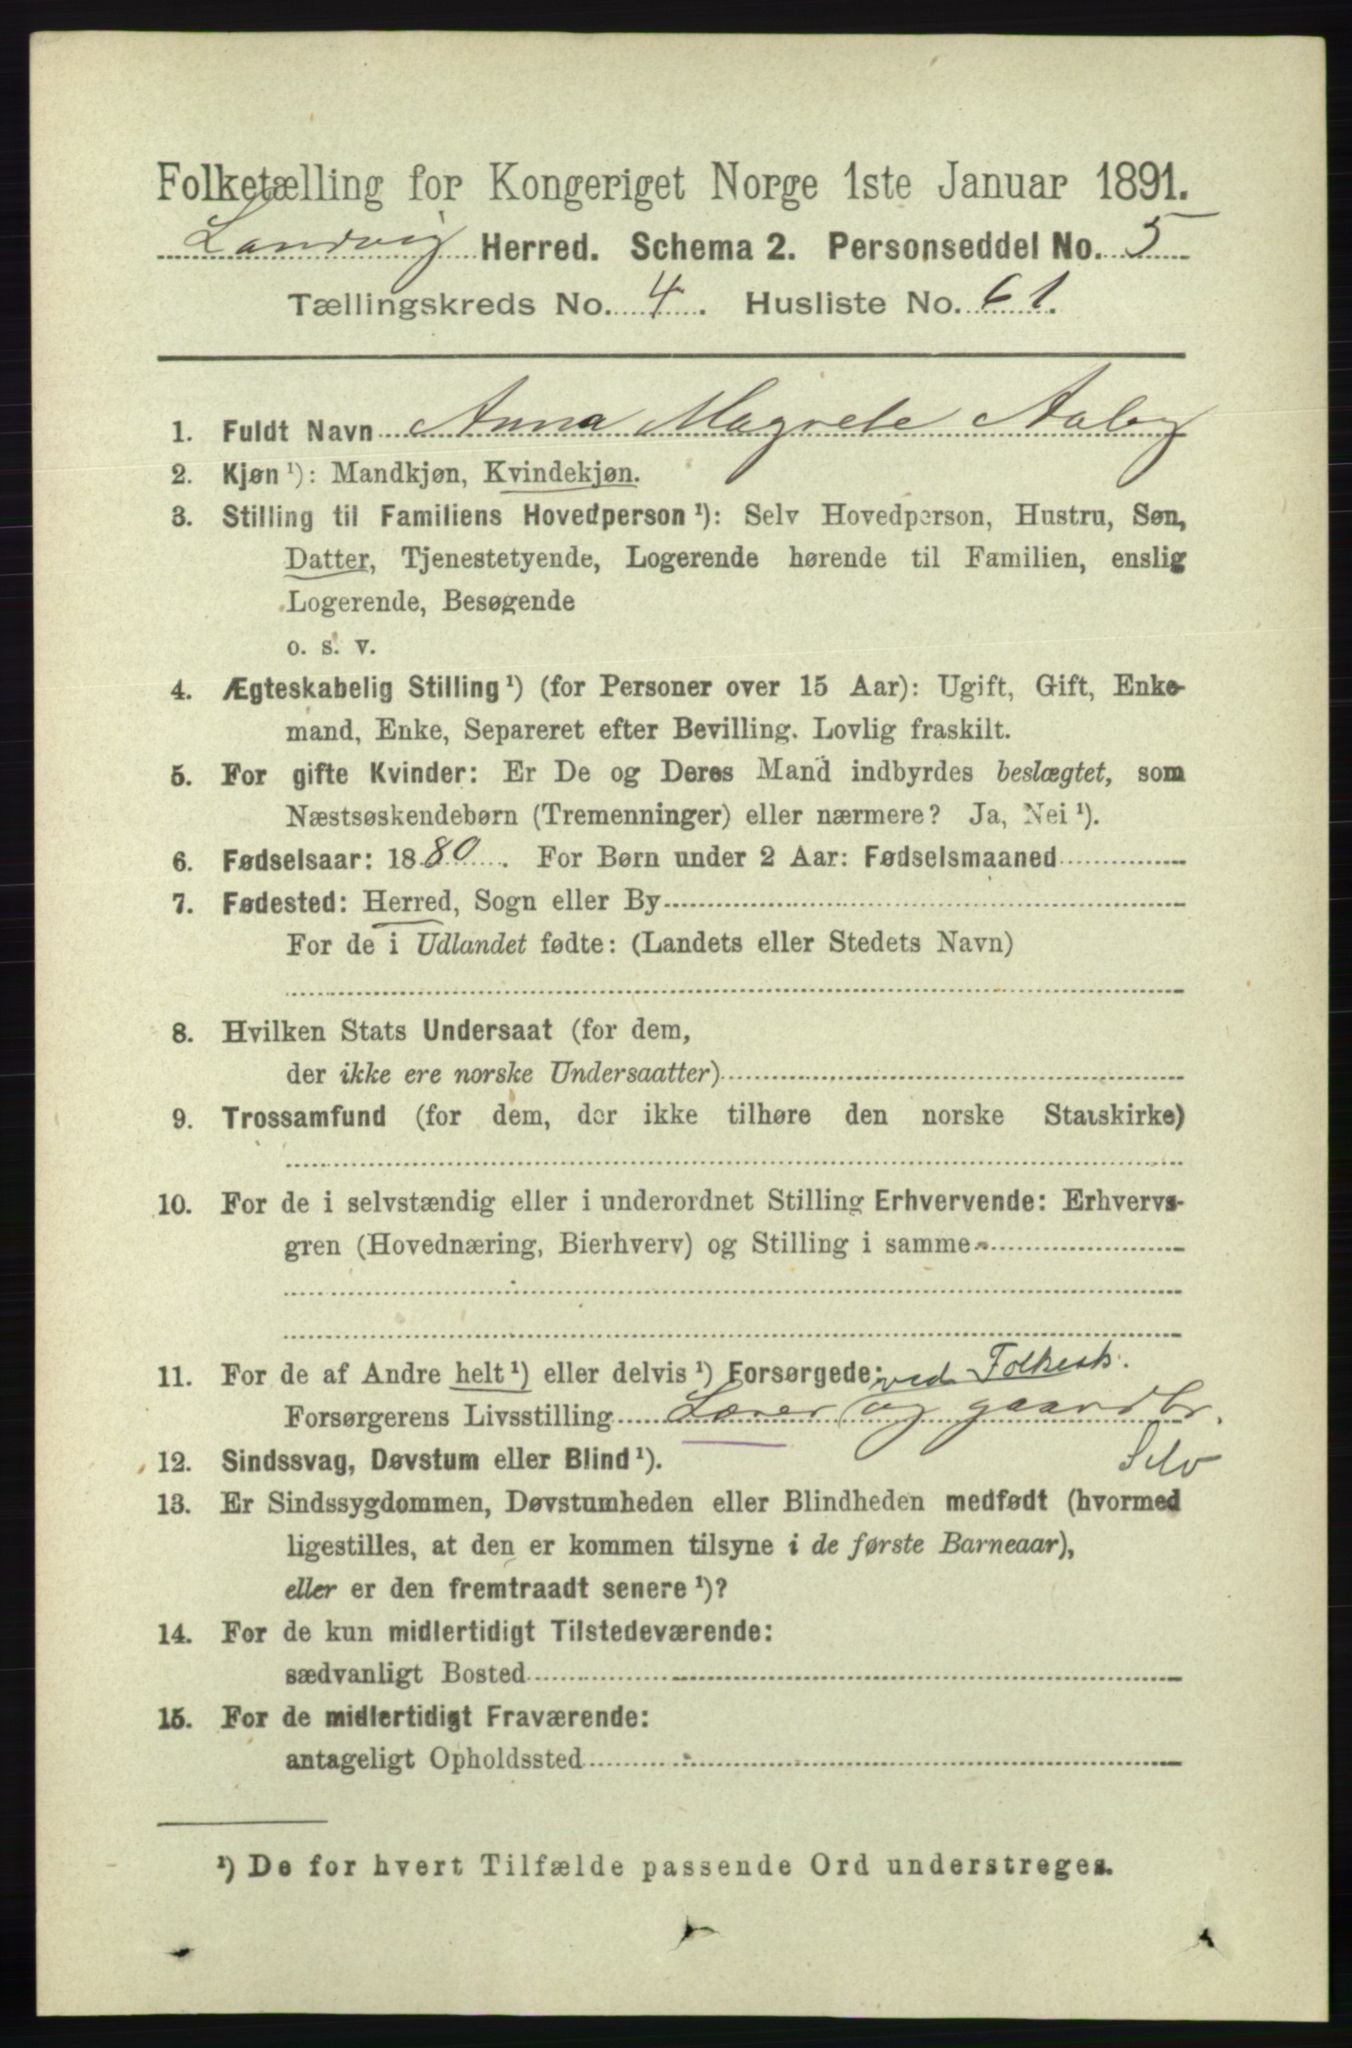 Folketælling for Kongeriget Norge 1ste Januar 1891.
Landvig Herred. Schema 2. Personseddel No. 5
Tællingskreds No. 4. Husliste No. 61.
1. Fuldt Navn Anna Magrete Aaby
2. Kjøn ¹): Mandkjøn, Kvindekjøn.
3. Stilling til Familiens Hovedperson ¹): Selv Hovedperson, Hustru, Søn,
Datter, Tjenestetyende, Logerende hørende til Familien, enslig
Logerende, Besøgende
o. s. v.
4. Ægteskabelig Stilling ¹) (for Personer over 15 Aar): Ugift, Gift, Enke-
mand, Enke, Separeret efter Bevilling. Lovlig fraskilt.
5. For gifte Kvinder: Er De og Deres Mand indbyrdes beslægtet, som
Næstsøskendebørn (Tremenninger) eller nærmere? Ja, Nei ¹).
6. Fødselsaar: 1880. For Børn under 2 Aar: Fødselsmaaned
7. Fødested: Herred, Sogn eller By
For de i Udlandet fødte: (Landets eller Stedets Navn)
8. Hvilken Stats Undersaat (for dem,
der ikke ere norske Undersaatter)
9. Trossamfund (for dem, der ikke tilhøre den norske Statskirke)
10. For de i selvstændig eller i underordnet Stilling Erhvervende: Erhvervs-
gren (Hovednæring, Bierhverv) og Stilling i samme
11. For de af Andre helt ¹) eller delvis ¹) Forsørgede: ved Folkesk.
Forsørgerens Livsstilling Lærer og gaardbr.
Selv
12. Sindssvag, Døvstum eller Blind ¹).
13. Er Sindssygdommen, Døvstumheden eller Blindheden medfødt (hvormed
ligestilles, at den er kommen tilsyne i de første Barneaar),
eller er den fremtraadt senere ¹)?
14. For de kun midlertidigt Tilstedeværende:
sædvanligt Bosted
15. For de midlertidigt Fraværende:
antageligt Opholdssted
¹) De for hvert Tilfælde passende Ord understreges.